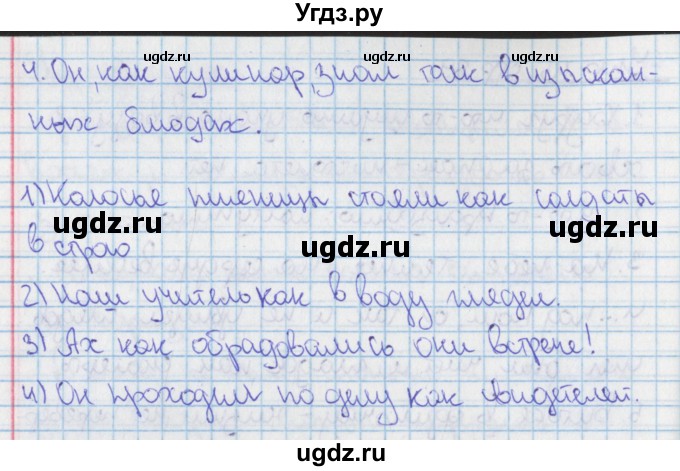 Угдз.ру
4. Он, как кулинар, знал толк в изыскан-
ных блюдах.
1) Колосья пшеницы стояли как солдаты
в строю
2) Наш учитель как в воду глядел.
3) Ах как обрадовались они встрече!
4) Он проходил по делу как свидетель.
ugdz.ru
ugdz.ru
ugdz.ru
ugdz.ru
ugdz.ru
ugdz.ru
ugdz.ru
ugdz.ru
ugdz.ru